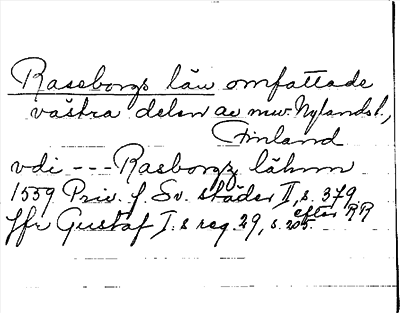 Raseborgs län omfattade
västra delen av nuv. Nylands l.,
Finland
vdi --- Rasborgz lähnn
1559 Priv. f. Sv. städer II, s. 379.
Jfr Gustaf I:s reg. 29, s. 205. efter RR